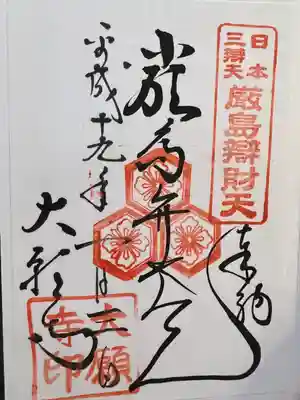 日本
三辨天
厳島辯財天
奉納
厳島弁才天
平成十九年
大願寺
大願
寺印